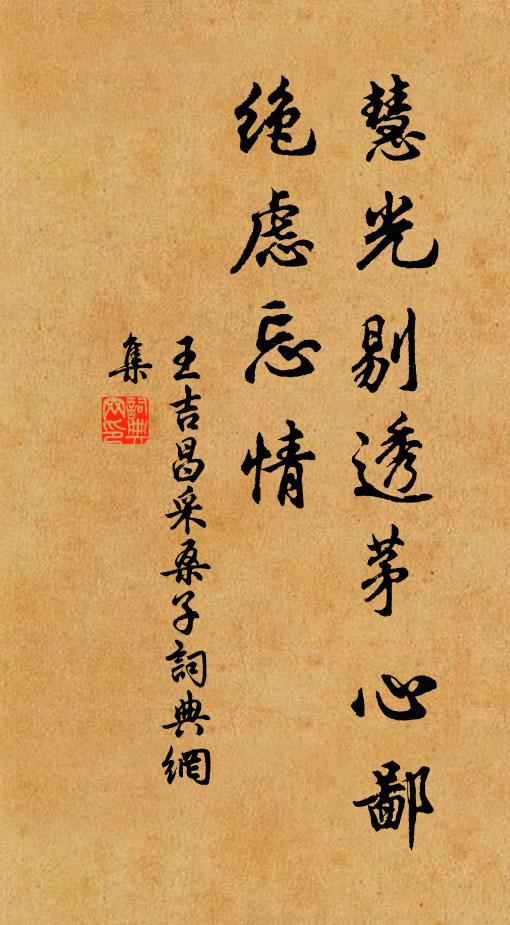 慧光剔透茅心鄙
绝虑忘情
王吉昌采桑子詞典網
集
詞典
网印